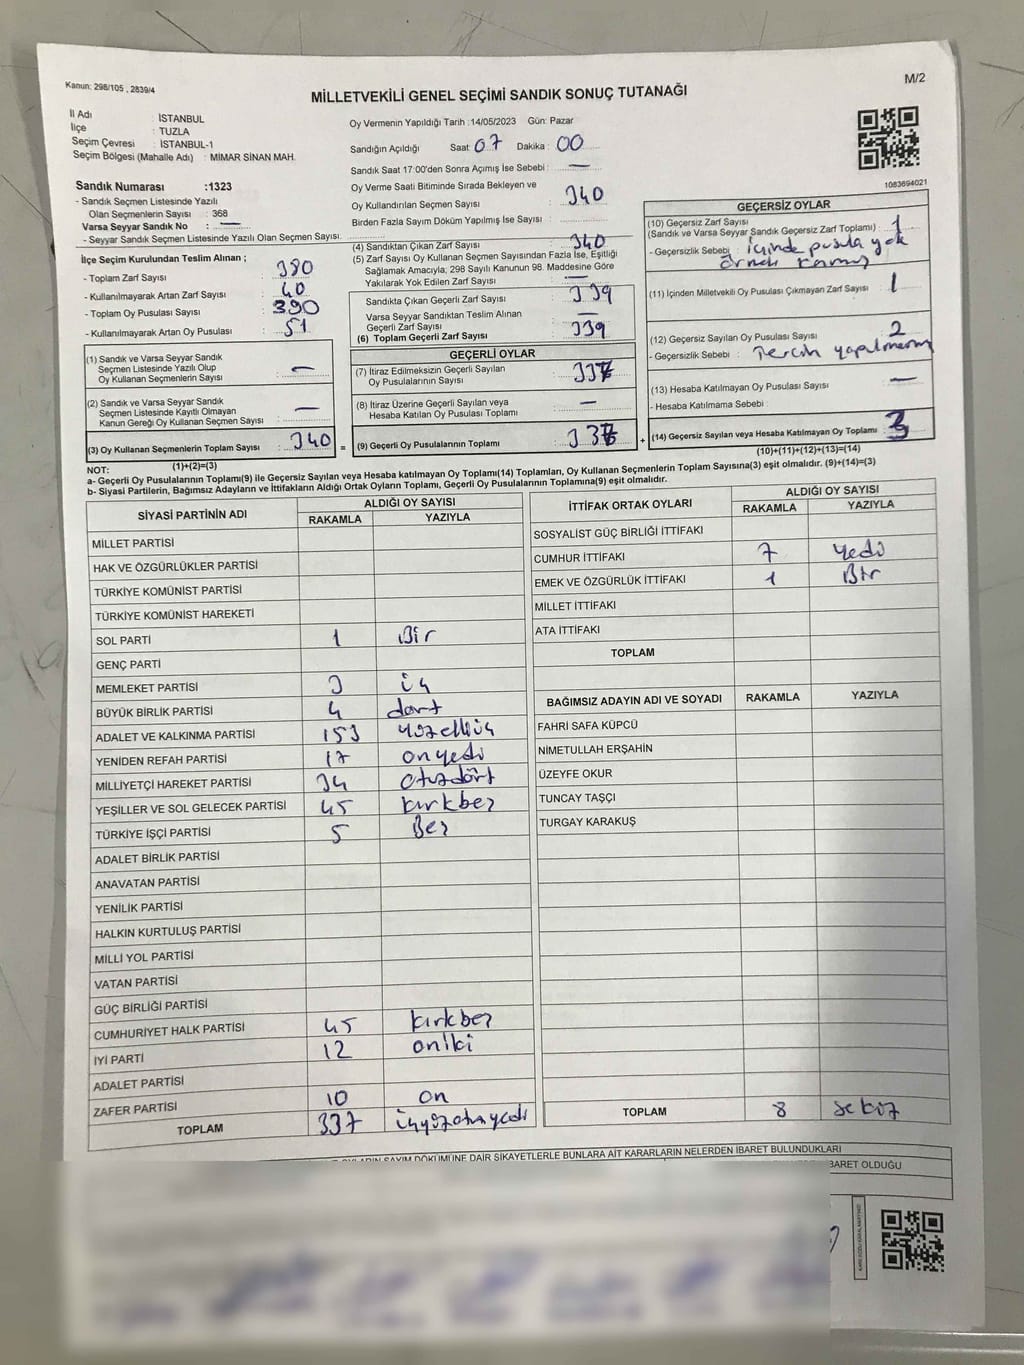 Kanun: 298/105 , 2839/4
M/2
MİLLETVEKİLİ GENEL SEÇİMİ SANDIK SONUÇ TUTANAĞI
İl Adı : İSTANBUL
İlçe : TUZLA
Seçim Çevresi : İSTANBUL-1
Seçim Bölgesi (Mahalle Adı) : MİMAR SİNAN MAH.
Sandık Numarası :1323
- Sandık Seçmen Listesinde Yazılı
Olan Seçmenlerin Sayısı : 368
Varsa Seyyar Sandık No : —
- Seyyar Sandık Seçmen Listesinde Yazılı Olan Seçmen Sayısı:
İlçe Seçim Kurulundan Teslim Alınan ;
- Toplam Zarf Sayısı : 380
- Kullanılmayarak Artan Zarf Sayısı : 40
- Toplam Oy Pusulası Sayısı : 390
- Kullanılmayarak Artan Oy Pusulası : 51
(1) Sandık ve Varsa Seyyar Sandık
Seçmen Listesinde Yazılı Olup
Oy Kullanan Seçmenlerin Sayısı : —
(2) Sandık ve Varsa Seyyar Sandık
Seçmen Listesinde Kayıtlı Olmayan
Kanun Gereği Oy Kullanan Seçmen Sayısı : —
(3) Oy Kullanan Seçmenlerin Toplam Sayısı : 340 =
(1)+(2)=(3)
Oy Vermenin Yapıldığı Tarih :14/05/2023 Gün: Pazar
Sandığın Açıldığı Saat 07 Dakika : 00
Sandık Saat 17:00'den Sonra Açımış İse Sebebi : —
Oy Verme Saati Bitiminde Sırada Bekleyen ve
Oy Kullandırılan Seçmen Sayısı : 340
Birden Fazla Sayım Döküm Yapılmış İse Sayısı :
(4) Sandıktan Çıkan Zarf Sayısı : 340
(5) Zarf Sayısı Oy Kullanan Seçmen Sayısından Fazla İse, Eşitliği
Sağlamak Amacıyla; 298 Sayılı Kanunun 98. Maddesine Göre
Yakılarak Yok Edilen Zarf Sayısı : —
Sandıkta Çıkan Geçerli Zarf Sayısı : 339
Varsa Seyyar Sandıktan Teslim Alınan
Geçerli Zarf Sayısı : —
(6) Toplam Geçerli Zarf Sayısı : 339
GEÇERLİ OYLAR
(7) İtiraz Edilmeksizin Geçerli Sayılan
Oy Pusulalarının Sayısı : 337
(8) İtiraz Üzerine Geçerli Sayılan veya
Hesaba Katılan Oy Pusulası Toplamı : —
(9) Geçerli Oy Pusulalarının Toplamı : 337 +
1083694021
GEÇERSİZ OYLAR
(10) Geçersiz Zarf Sayısı
(Sandık ve Varsa Seyyar Sandık Geçersiz Zarf Toplamı) : 1
- Geçersizlik Sebebi : içinde pusula yok
(11) İçinden Milletvekili Oy Pusulası Çıkmayan Zarf Sayısı : 1
(12) Geçersiz Sayılan Oy Pusulası Sayısı : 2
- Geçersizlik Sebebi : Tercih yapılmamış
(13) Hesaba Katılmayan Oy Pusulası Sayısı : —
- Hesaba Katılmama Sebebi :
(14) Geçersiz Sayılan veya Hesaba Katılmayan Oy Toplamı : 3
(10)+(11)+(12)+(13)=(14)
NOT:
a- Geçerli Oy Pusulalarının Toplamı(9) ile Geçersiz Sayılan veya Hesaba katılmayan Oy Toplamı(14) Toplamları, Oy Kullanan Seçmenlerin Toplam Sayısına(3) eşit olmalıdır. (9)+(14)=(3)
b- Siyasi Partilerin, Bağımsız Adayların ve İttifakların Aldığı Ortak Oyların Toplamı, Geçerli Oy Pusulalarının Toplamına(9) eşit olmalıdır.
SİYASİ PARTİNİN ADI ALDIĞI OY SAYISI
RAKAMLA YAZIYLA
MİLLET PARTİSİ
HAK VE ÖZGÜRLÜKLER PARTİSİ
TÜRKİYE KOMÜNİST PARTİSİ
TÜRKİYE KOMÜNİST HAREKETİ
SOL PARTİ 1 Bir
GENÇ PARTİ
MEMLEKET PARTİSİ 3 üç
BÜYÜK BİRLİK PARTİSİ 4 dört
ADALET VE KALKINMA PARTİSİ 153 yüzelliüç
YENİDEN REFAH PARTİSİ 17 onyedi
MİLLİYETÇİ HAREKET PARTİSİ 34 otuzdört
YEŞİLLER VE SOL GELECEK PARTİSİ 45 kırkbeş
TÜRKİYE İŞÇİ PARTİSİ 5 Beş
ADALET BİRLİK PARTİSİ
ANAVATAN PARTİSİ
YENİLİK PARTİSİ
HALKIN KURTULUŞ PARTİSİ
MİLLİ YOL PARTİSİ
VATAN PARTİSİ
GÜÇ BİRLİĞİ PARTİSİ
CUMHURİYET HALK PARTİSİ 45 kırkbeş
İYİ PARTİ 12 oniki
ADALET PARTİSİ
ZAFER PARTİSİ 10 on
TOPLAM 337 üçyüzotuzyedi
İTTİFAK ORTAK OYLARI ALDIĞI OY SAYISI
RAKAMLA YAZIYLA
SOSYALİST GÜÇ BİRLİĞİ İTTİFAKI
CUMHUR İTTİFAKI 7 yedi
EMEK VE ÖZGÜRLÜK İTTİFAKI 1 Bir
MİLLET İTTİFAKI
ATA İTTİFAKI
TOPLAM
BAĞIMSIZ ADAYIN ADI VE SOYADI RAKAMLA YAZIYLA
FAHRİ SAFA KÜPCÜ
NİMETULLAH ERŞAHİN
ÜZEYFE OKUR
TUNCAY TAŞÇI
TURGAY KARAKUŞ
TOPLAM 8 sekiz
SAYIM DÖKÜMÜNE DAİR ŞİKAYETLERLE BUNLARA AİT KARARLARIN NELERDEN İBARET BULUNDUKLARI
İBARET OLDUĞU